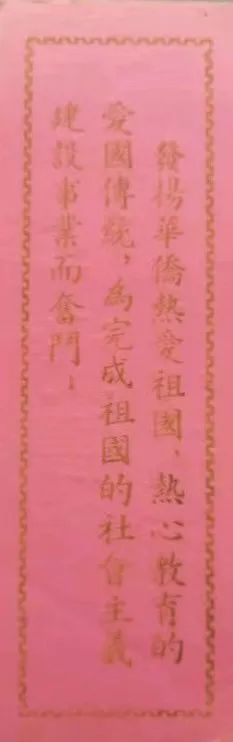 發揚華僑熱愛祖國，熱心教育的
愛國傳統，為完成祖國的社會主義
建設事業而奮鬥！